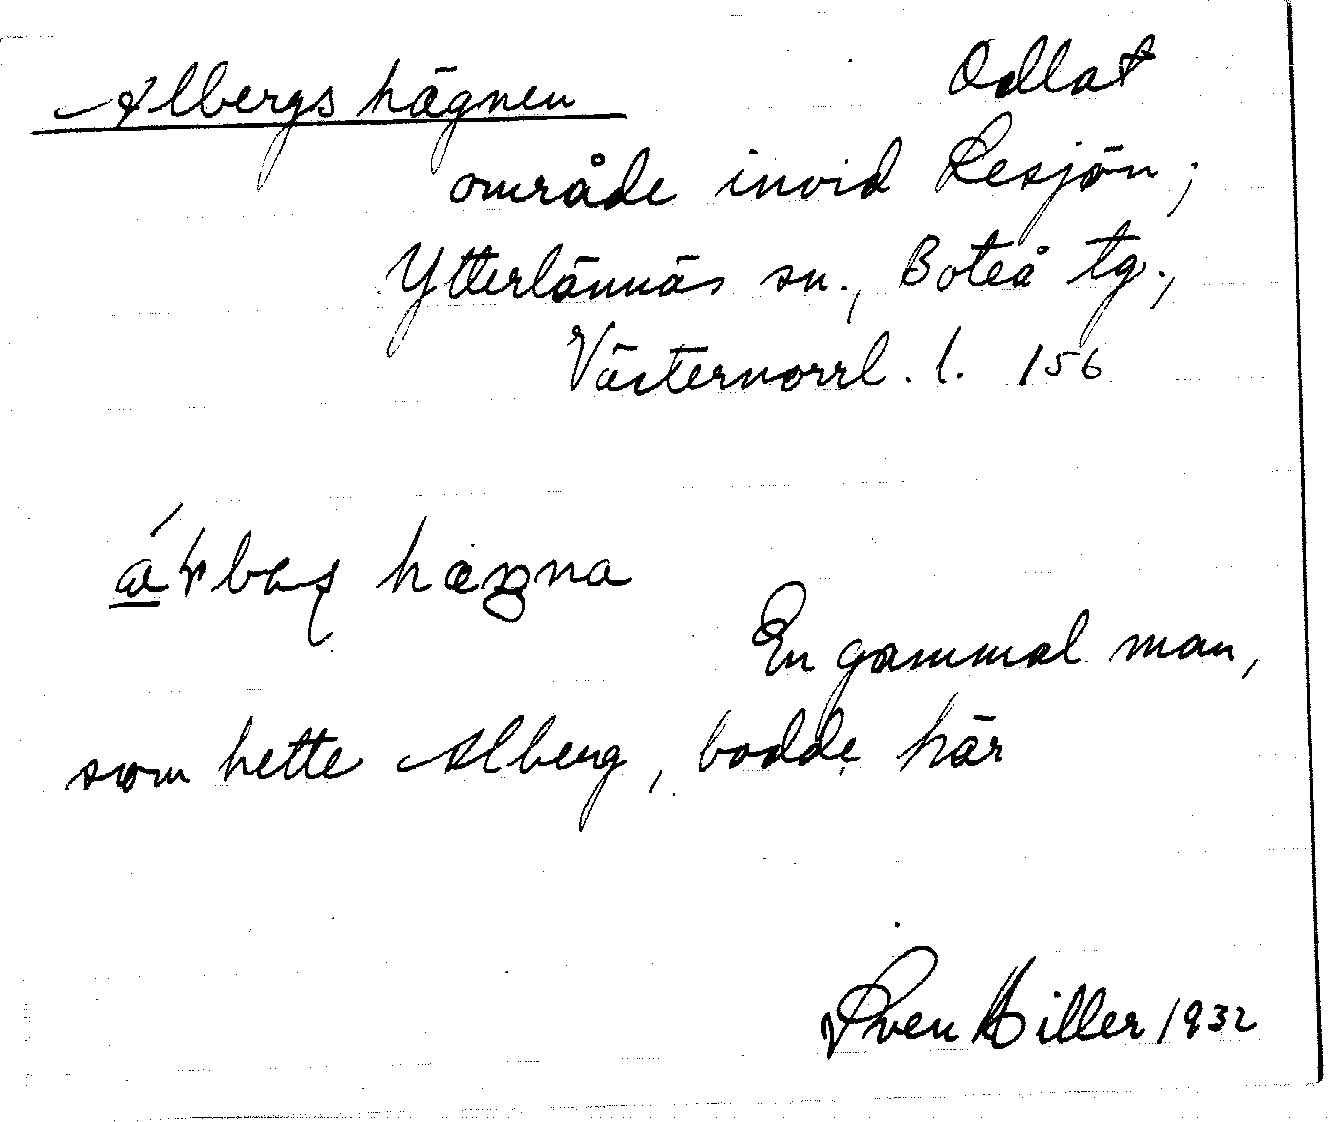 Albergs hägnen Odlat
område invid Lesjön;
Ytterlännäs sn., Boteå tg.,
Västernorrl. l. 156
hægna
En gammal man,
som hette Alberg, bodde här
Sven Hiller 1932